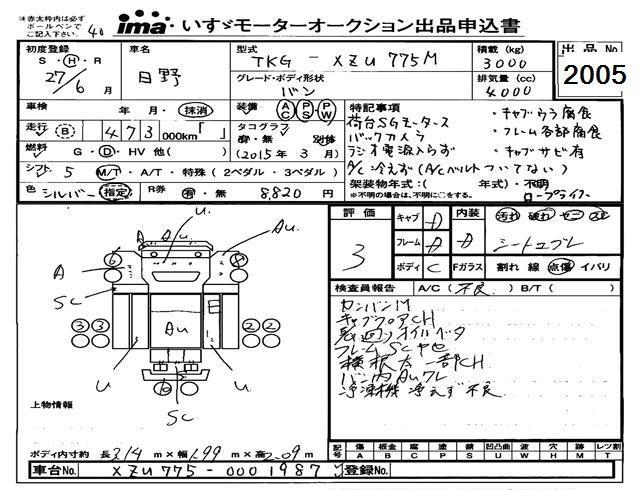 ※赤太枠内は必ず
ボールペンで
ご記入下さい。
ima いすゞモーターオークション出品申込書
初度登録
S・H・R
27/6 月
車名
日野
型式
TKG - XZU 775M
グレード・ボディ形状
バン
積載 (kg)
3000
排気量 (cc)
4000
出品No.
2005
車検 年・月・抹消
装備 AC PS PW
走行 B 473 000km「 」
タコグラフ
有・無 別体
(2015年 3月)
燃料 G・D・HV 他( )
シフト 5 M/T・A/T・特殊(2ペダル・3ペダル)
色 シルバー 指定
R券 有・無 8,820円
特記事項
荷台SGモータース
バックカメラ
ラジオ電源入らず
A/C冷えず(A/Cベルトついてない)
・キャブウラ腐食
・フレーム各部腐食
・キャブサビ有
架装物年式:( 年式)・不明
※不明の場合は、不明に○をする。
評価
3
キャブ D
フレーム D
ボディ C
内装 D
汚れ 破れ
シートスレ
Fガラス 割れ 線 点傷 イバリ
検査員報告 A/C(不良)B/T( )
カンバンM
キャブフロアCH
フレームSCヤセ
横根太一部CH
バン内AUワレ
冷凍機冷えず不良
U
AU
A
SC
AU
U
U
SC
6
3 3
2 2
上物情報
ボディ内寸約 長314m×幅199m×高209m
記号 傷 板金 腐 塗 錆 凹凸曲 波 穴 跡 レンズ割
A B C P S U W H M T
車台No. XZU775-0001987
登録No.